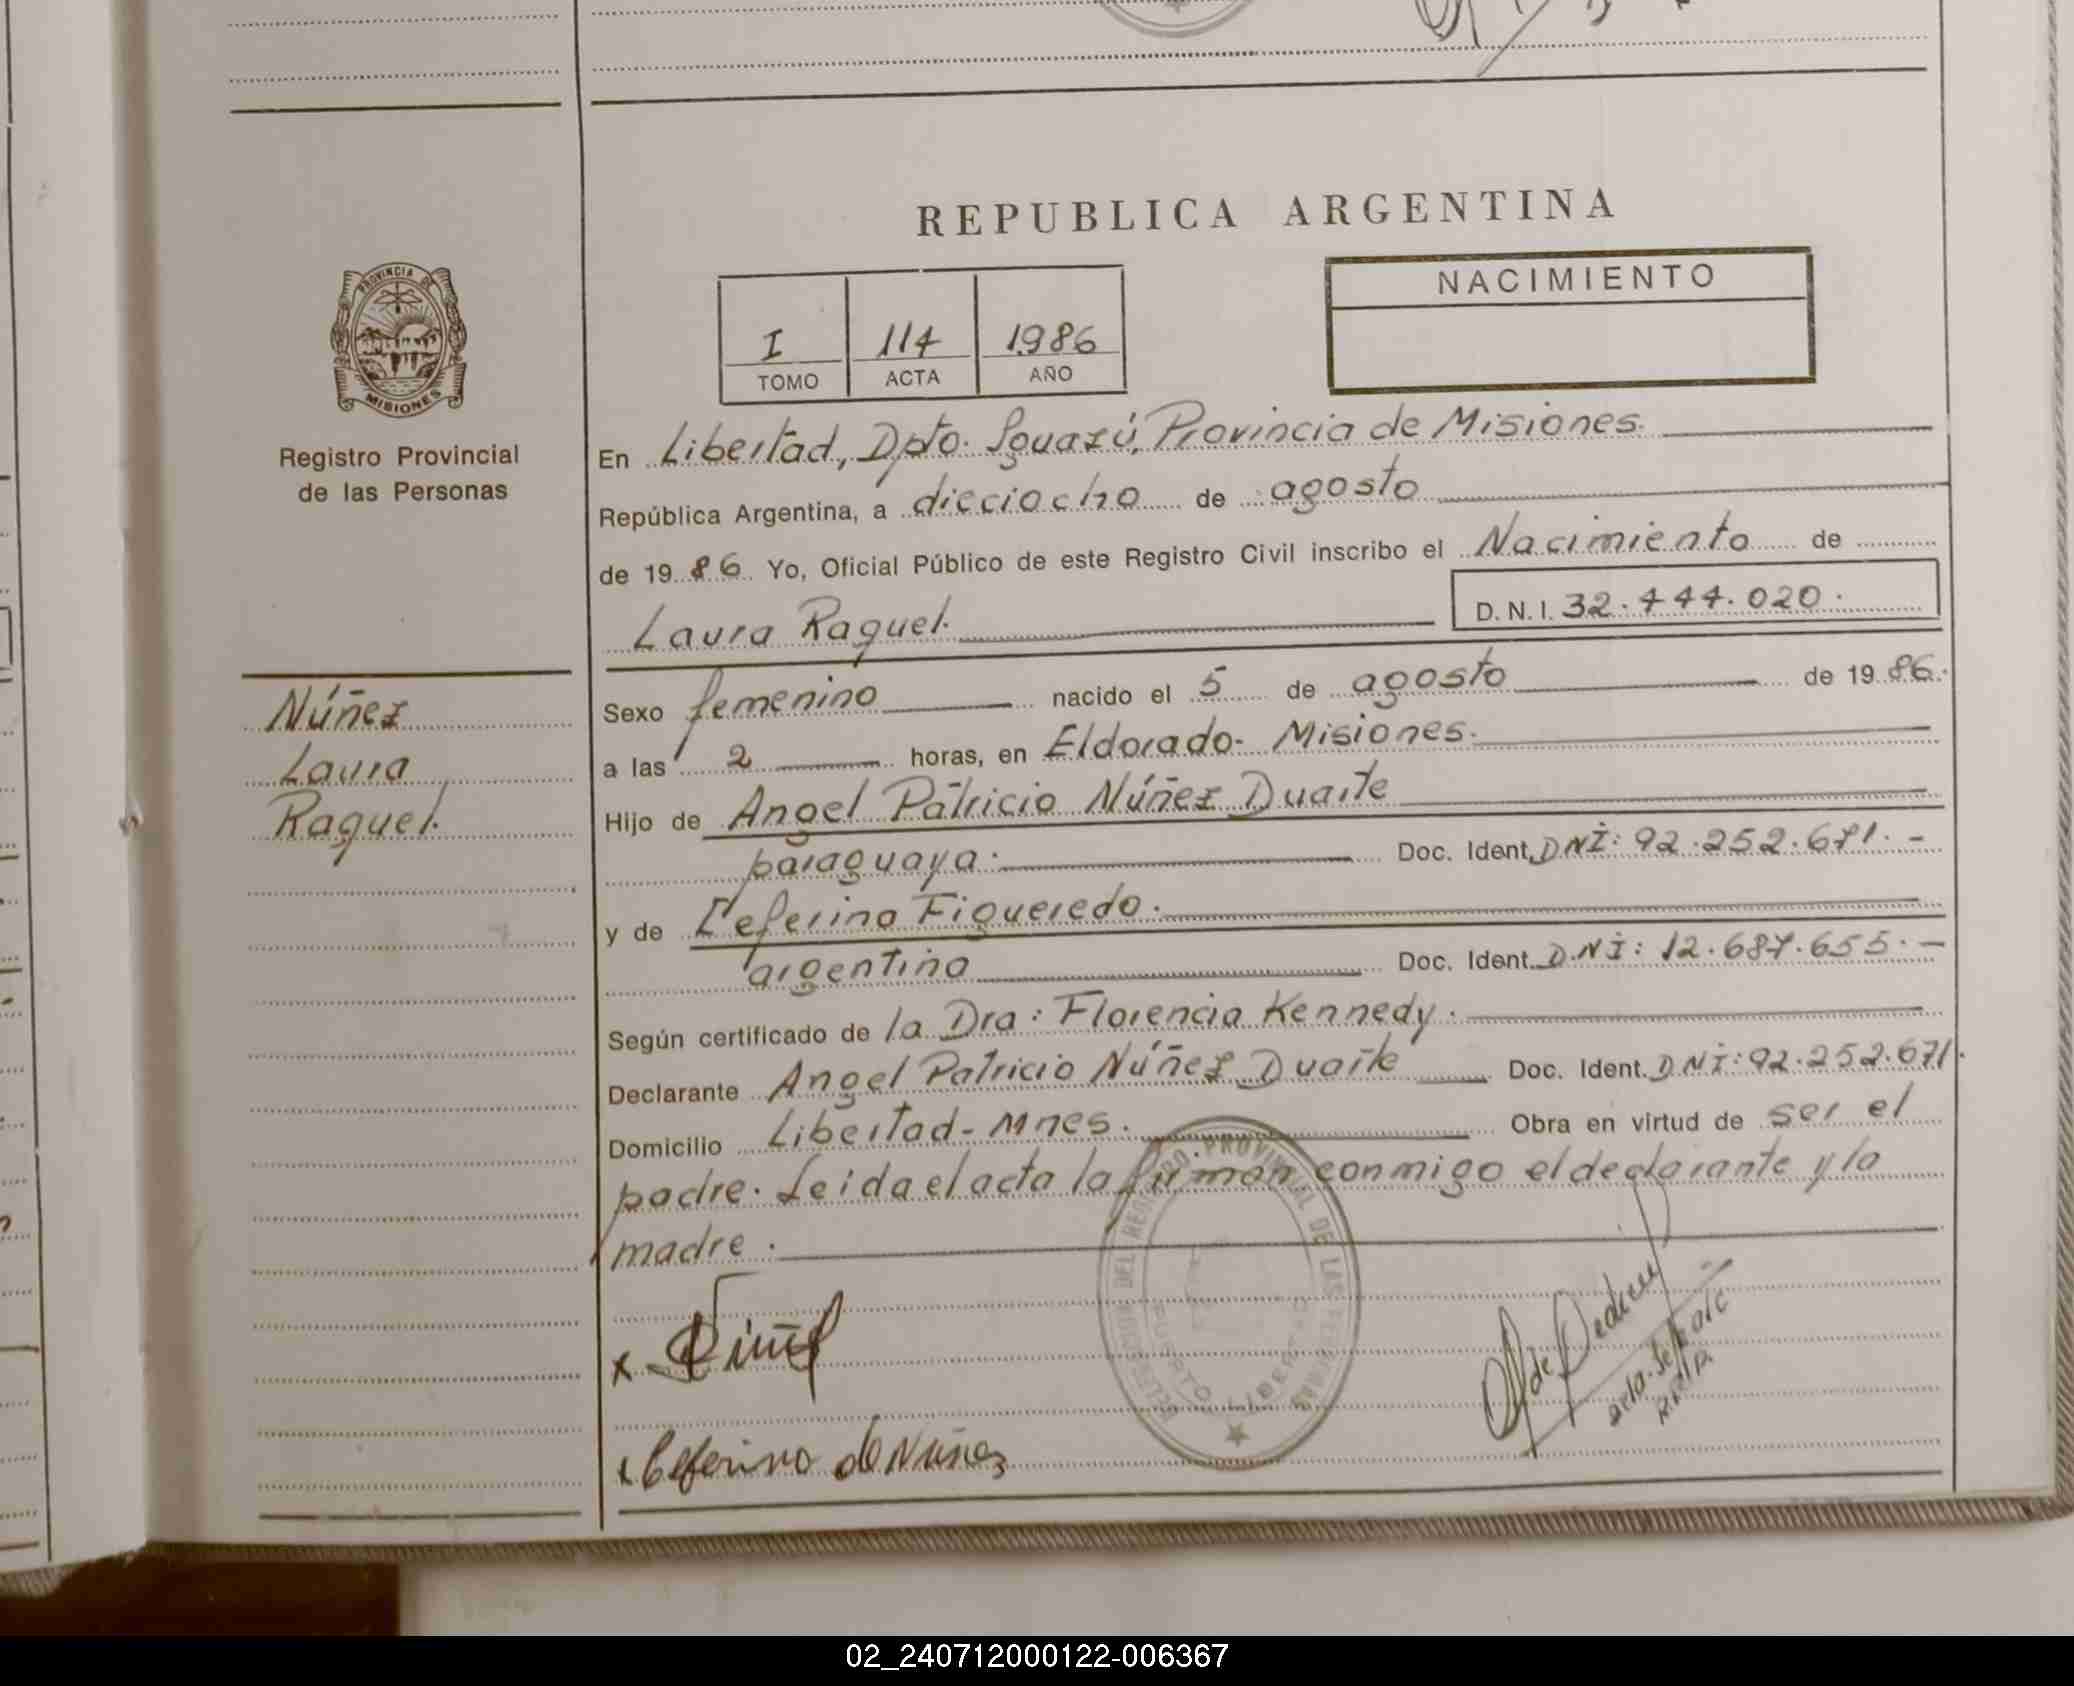 REPUBLICA ARGENTINA
NACIMIENTO
I 114 1986
TOMO ACTA AÑO
PROVINCIA DE
MISIONES
Registro Provincial
de las Personas
Núñez
Laura
Raquel.
En Libertad, Dpto. Iguazú, Provincia de Misiones.
República Argentina, a dieciocho de agosto
de 1986 Yo, Oficial Público de este Registro Civil inscribo el Nacimiento de
Laura Raquel. D.N.I. 32.444.020.
Sexo femenino nacido el 5 de agosto de 1986.
a las 2 horas, en Eldorado- Misiones.
Hijo de Angel Patricio Núñez Duarte
paraguaya. Doc. Ident. DNI: 92.252.671. -
y de Ceferina Figueredo.
argentina Doc. Ident. D.NI: 12.687.655. -
Según certificado de la Dra: Florencia Kennedy.
Declarante Angel Patricio Núñez Duarte Doc. Ident. DNI: 92.252.671.
Domicilio Libertad- Mnes. Obra en virtud de ser el
padre. Leida el acta la firman conmigo el declarante y la
madre.
PROVINCIAL DE LAS
PUERTO LIBERTAD
x
x Ceferina de Nuñez
02_240712000122-006367